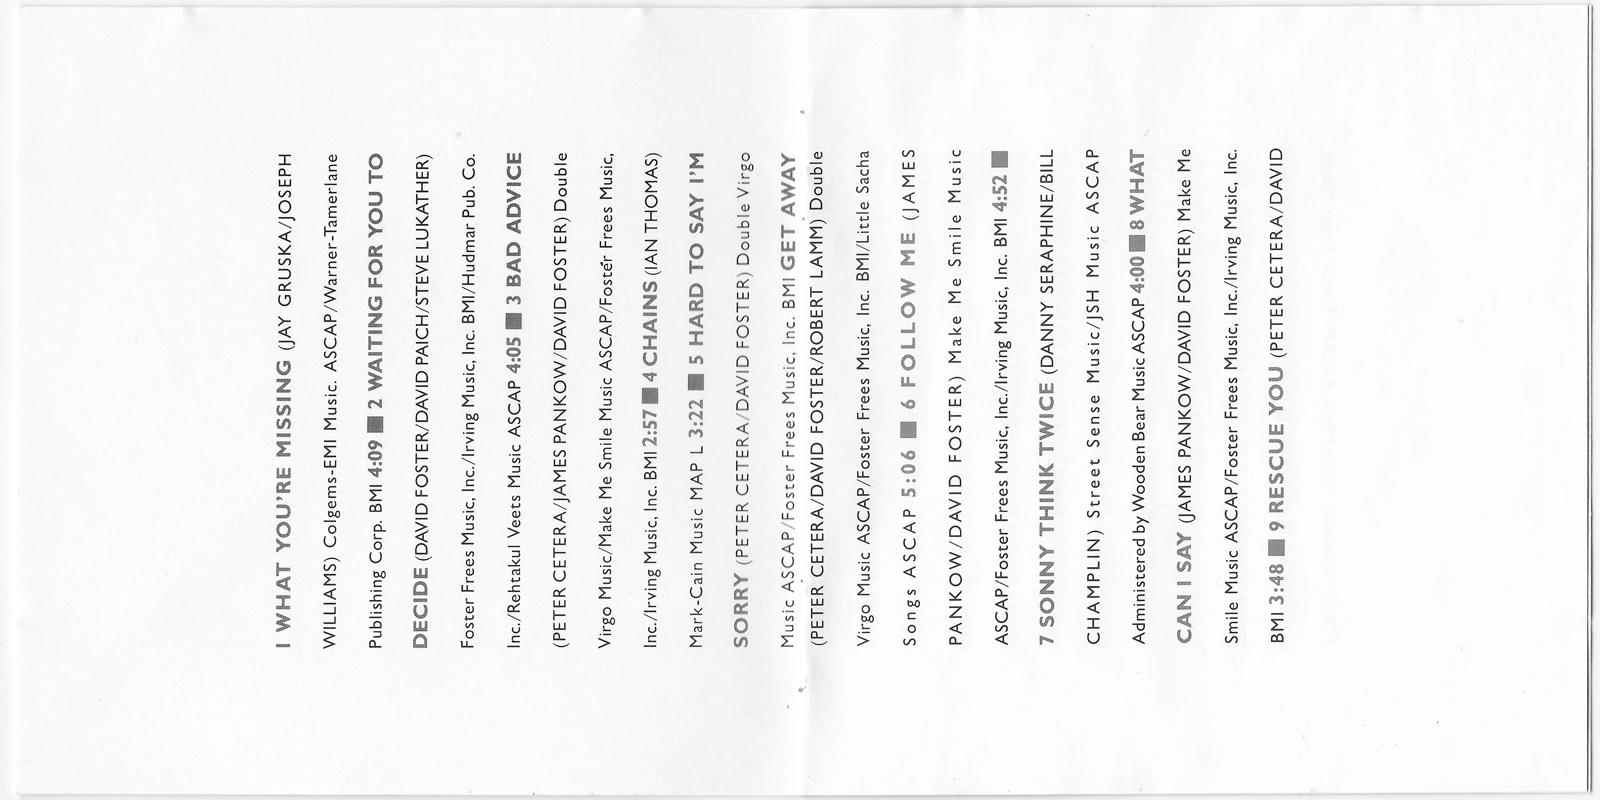 1 WHAT YOU'RE MISSING (JAY GRUSKA/JOSEPH
WILLIAMS) Colgems-EMI Music. ASCAP/Warner-Tamerlane
Publishing Corp. BMI 4:09 ■ 2 WAITING FOR YOU TO
DECIDE (DAVID FOSTER/DAVID PAICH/STEVE LUKATHER)
Foster Frees Music, Inc./Irving Music, Inc. BMI/Hudmar Pub. Co.
Inc./Rehtakul Veets Music ASCAP 4:05 ■ 3 BAD ADVICE
(PETER CETERA/JAMES PANKOW/DAVID FOSTER) Double
Virgo Music/Make Me Smile Music ASCAP/Foster Frees Music,
Inc./Irving Music, Inc. BMI 2:57 ■ 4 CHAINS (IAN THOMAS)
Mark-Cain Music MAP L 3:22 ■ 5 HARD TO SAY I'M
SORRY (PETER CETERA/DAVID FOSTER) Double Virgo
Music ASCAP/Foster Frees Music, Inc. BMI GET AWAY
(PETER CETERA/DAVID FOSTER/ROBERT LAMM) Double
Virgo Music ASCAP/Foster Frees Music, Inc. BMI/Little Sacha
Songs ASCAP 5:06 ■ 6 FOLLOW ME (JAMES
PANKOW/DAVID FOSTER) Make Me Smile Music
ASCAP/Foster Frees Music, Inc./Irving Music, Inc. BMI 4:52 ■
7 SONNY THINK TWICE (DANNY SERAPHINE/BILL
CHAMPLIN) Street Sense Music/JSH Music ASCAP
Administered by Wooden Bear Music ASCAP 4:00 ■ 8 WHAT
CAN I SAY (JAMES PANKOW/DAVID FOSTER) Make Me
Smile Music ASCAP/Foster Frees Music, Inc./Irving Music, Inc.
BMI 3:48 ■ 9 RESCUE YOU (PETER CETERA/DAVID